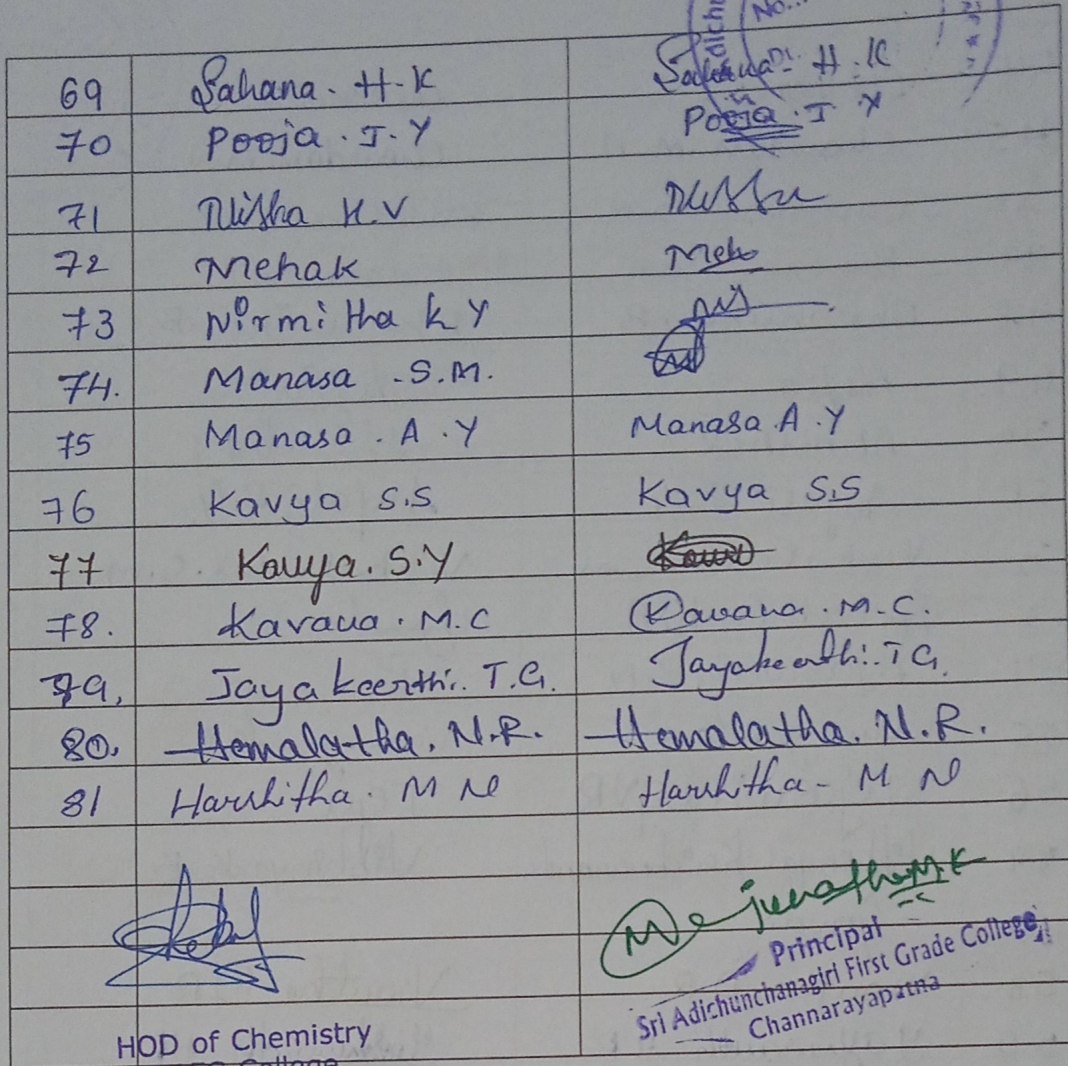 No...
69 Sahana. H.K Sahana. H.K
70 Pooja. J.Y Pooja. J Y
71 Nisha H.V
72 Mehak Meh
73 Nirmitha K Y
74. Manasa .S.M.
75 Manasa . A . Y Manasa . A . Y
76 Kavya S.S Kavya S.S
77 Kavya. S.Y
78. Kavana . M.C Kavana . M.C.
79, Jayakeerthi. T.G. Jayakeerthi. T G.
80. Hemalatha. N.R. Hemalatha. N.R.
81 Harshitha. M N Harshitha - M N
Manjunatha M K
Principal
Sri Adichunchanagiri First Grade College,
Channarayapatna
HOD of Chemistry